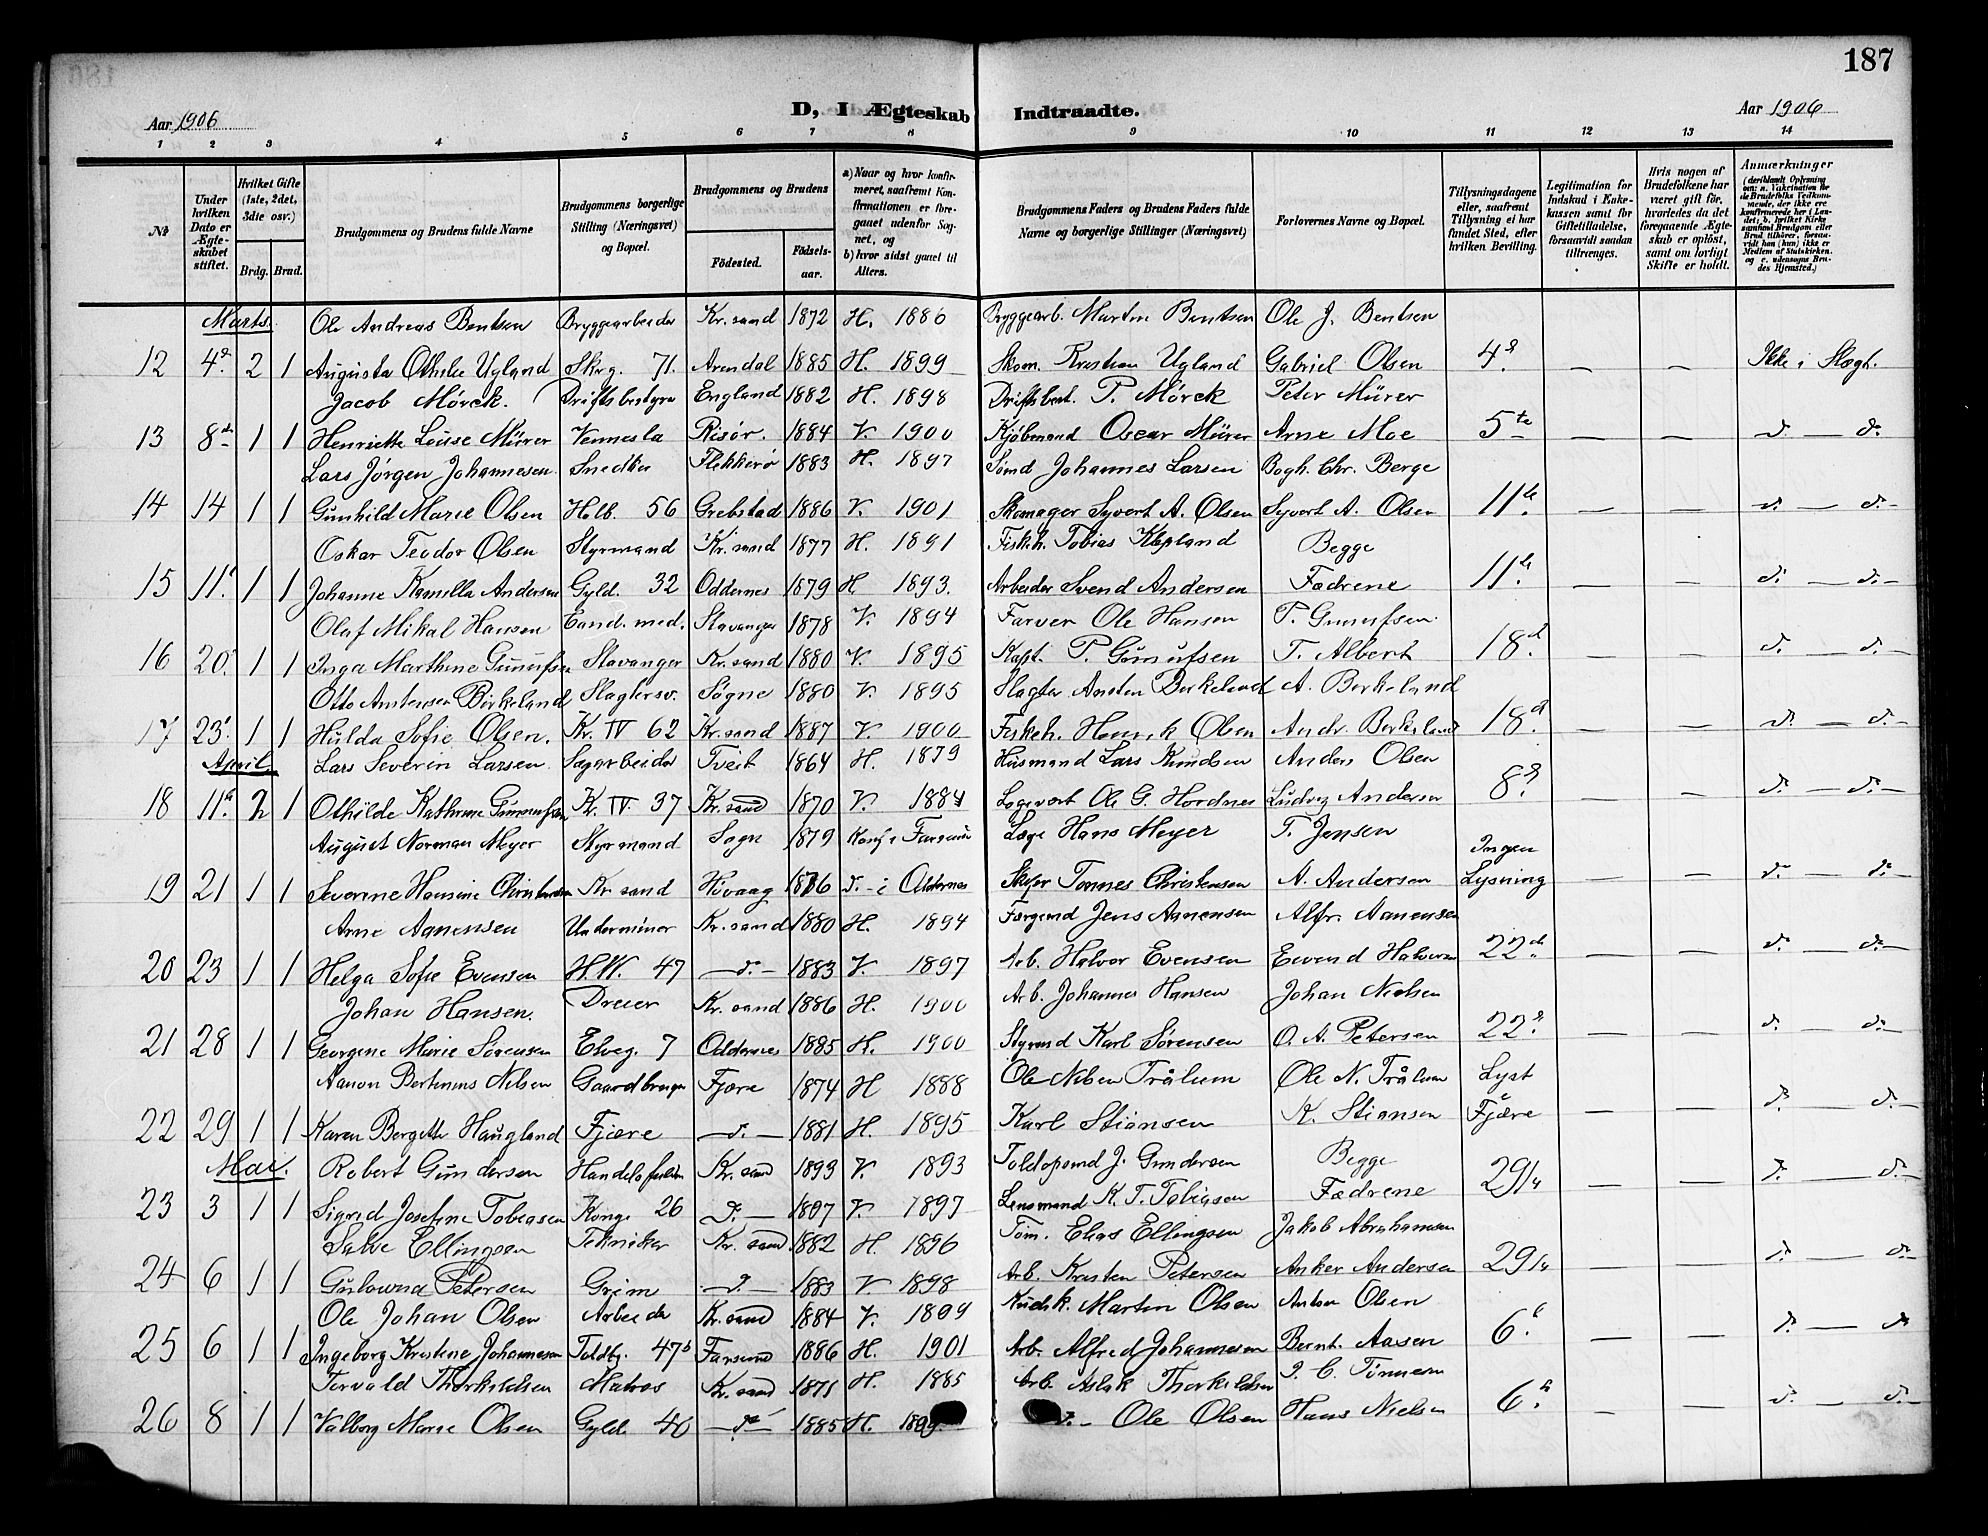 187
D, I Ægteskab Indtraadte.
Aar 1906
Aar 1906
1 2 3 4 5 6 7 8 9 10 11 12 13 14
No
Under hvilken Dato er Ægteskabet stiftet.
Hvilket Gifte (1ste, 2det, 3die osv.)
Brdg. Brud.
Brudgommens og Brudens fulde Navne
Brudgommens borgerlige Stilling (Næringsvei) og Bopæl.
Brudgommens og Brudens
Fødested.
Fødselsaar.
a) Naar og hvor konfirmeret, saafremt Konfirmationen er foregaaet udenfor Sognet, og
b) hvor sidst gaaet til Alters.
Brudgommens Faders og Brudens Faders fulde Navne og borgerlige Stillinger (Næringsvei)
Forlovernes Navne og Bopæl.
Tillysningsdagene eller, saafremt Tillysning ei har fundet Sted, efter hvilken Bevilling.
Legitimation for Indskud i Enkekassen samt for Giftetilladelse, forsaavidt saadan tiltrænges.
Hvis nogen af Brudefolkene har været gift før, hvorledes da det foregaaende Ægteskab er opløst, samt om lovligt Skifte er holdt.
Anmærkninger
Marts. Ole Andreas Bentsen Bryggearbeider Kr.sand 1872 H. 1886 Bryggearb. Martin Bentsen Ole J. Bentsen
12 4 2 1 Augusta Othilie Ugland Skrg. 71. Arendal 1885 H. 1899 Skom. Kristian Ugland Gabriel Olsen 4 — — Ikke i Slægt.
Jacob Mørck. Driftsbestyrer England 1882 H. 1898 Driftsbest. P. Mørck Peter Mürer
13 8 1 1 Henriette Louise Mürer Vennesla Risør. 1884 V. 1900 Kjøbmand Oscar Mürer Arne Moe 5te — — d. — d.
Lars Jørgen Johannesen Snedker Flekkerø 1883 H. 1897 Sømd Johannes Larsen Bogh. Chr. Berge
14 14 1 1 Gunhild Marie Olsen Holb. 56 Grebstad 1886 V. 1901 Skomager Syvert A. Olsen Syvert A. Olsen 11te — — d. — d.
Oskar Teodor Olsen Styrmand Kr.sand 1877 H. 1891 Fiskeh. Tobias Klepland Begge
15 11 1 1 Johanne Kamilla Andersen Gyld. 32 Oddernes 1879 H 1893. Arbeider Svend Andersen Fædrene 11te — — d. — d.
Olaf Mikal Hansen Cand. med. Stavanger 1878 V. 1894 Farver Ole Hansen P. Gunufsen
16 20 1 1 Inga Marthine Gunufsen Stavanger Kr.sand 1880 V. 1895 Kapt. P. Gunufsen T. Albert 18 — — d. — d.
Otto Anstensen Birkeland Slagtersv. Søgne 1880 V. 1895 Slagter Ansten Berkeland A. Berkeland
17 23 1 1 Hulda Sofie Olsen. Kr. IV 62 Kr.sand 1887 V. 1900 Fiskeh. Henrik Olsen Andr. Berkeland 18 — — d. — d.
April. Lars Severin Larsen Sagarbeider Tveit 1864 H. 1879 Husmand Lars Knudsen Anders Olsen
18 11 2 1 Othilde Kathrine Gunnufsen Kr. IV. 37 Kr.sand 1870 V. 1884 Ole G. Hordnes Ludvig Andersen 8 — — d. — d.
August Norman Meyer Styrmand Sogn 1879 Konf. i Farsund Læge Hans Meyer T. Jensen Ingen
19 21 1 1 Severine Hansine Christensen Kr.sand Høvaag 1876 d. i Oddernes Skipr Tønnes Christensen A. Andersen Lysning — — d. — d.
Arne Aanensen Underminør Kr.sand 1880 H. 1894 Færgemd Jens Aanensen Alfr. Aanensen
20 23 1 1 Helga Sofie Evensen H.W. 47 — d. — 1883 V. 1897 Arb. Halvor Evensen Eivend Halvorsen 22 — — d. — d.
Johan Hansen. Dreier Kr.sand 1886 H. 1900 Arb. Johannes Hansen Johan Nielsen
21 28 1 1 Georgene Marie Sørensen Elveg. 7 Oddernes 1885 H. 1900 Styrmd Karl Sørensen O. A. Petersen 22 — — d. — d.
Aanon Bertinius Nelsen Gaardbruger Fjære 1874 H 1888 Ole Nelsen Trålum Ole N. Trålum Lyst
22 29 1 1 Karen Bergitte Haugland Fjære — d. — 1881 H. 1895 Karl Stiansen K. Stiansen i Fjære — — d. — d.
Mai. Robert Gundersen Handelsfuldm. Kr.sand 1893 V. 1893 Toldopsmd J. Gundersen Begge
23 3 1 1 Sigrid Josefine Tobiasen Konge 26 — d. — 1897 V. 1897 Lensmand K. T. Tobiasen Fædrene 29/4 — — d. — d.
Salve Ellingsen Tekniker Kr. sand 1882 H. 1896 Tøm. Elias Ellingsen Jakob Abrahamsen
24 6 1 1 Gulowna Petersen Grim — d. — 1883 V. 1898 Arb. Kristen Petersen Anker Andersen 29/4 — — d. — d.
Ole Johan Olsen Arbeider Kr.sand 1884 V. 1899 Kudsk. Martin Olsen Anton Olsen
25 6 1 1 Ingeborg Kristene Johannesen Toldbg. 47b Farsund 1886 H. 1901 Arb. Alfred Johannesen Bernt. Aasen 6 — — d. — d.
Torvald Thorkildsen Matros Kr.sand 1871 H. 1885 Arb. Aslak Thorkildsen J. C. Tønnesen
26 8 1 1 Valborg Marie Olsen Gyld. 40 — d. — 1885 H. 1899 d. — Ole Olsen Hans Nielsen 6 — — d. — d.